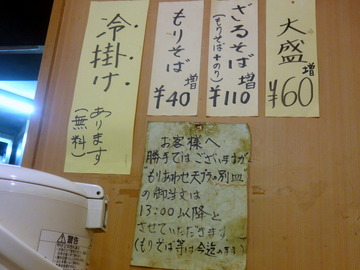 大盛
増
¥60
ざるそば
(もりそば+のり)
増
¥110
もりそば
増
¥40
冷掛け
あります
(無料)
お客様へ
勝手ではございますが
もりあわせ天プラの別皿
の御注文は
13:00以降と
させていただきます
(もりそば等は今迄
警告